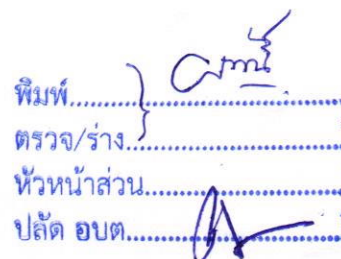 พิมพ์..............................
ตรวจ/ร่าง........................
หัวหน้าส่วน......................
ปลัด อบต.........................